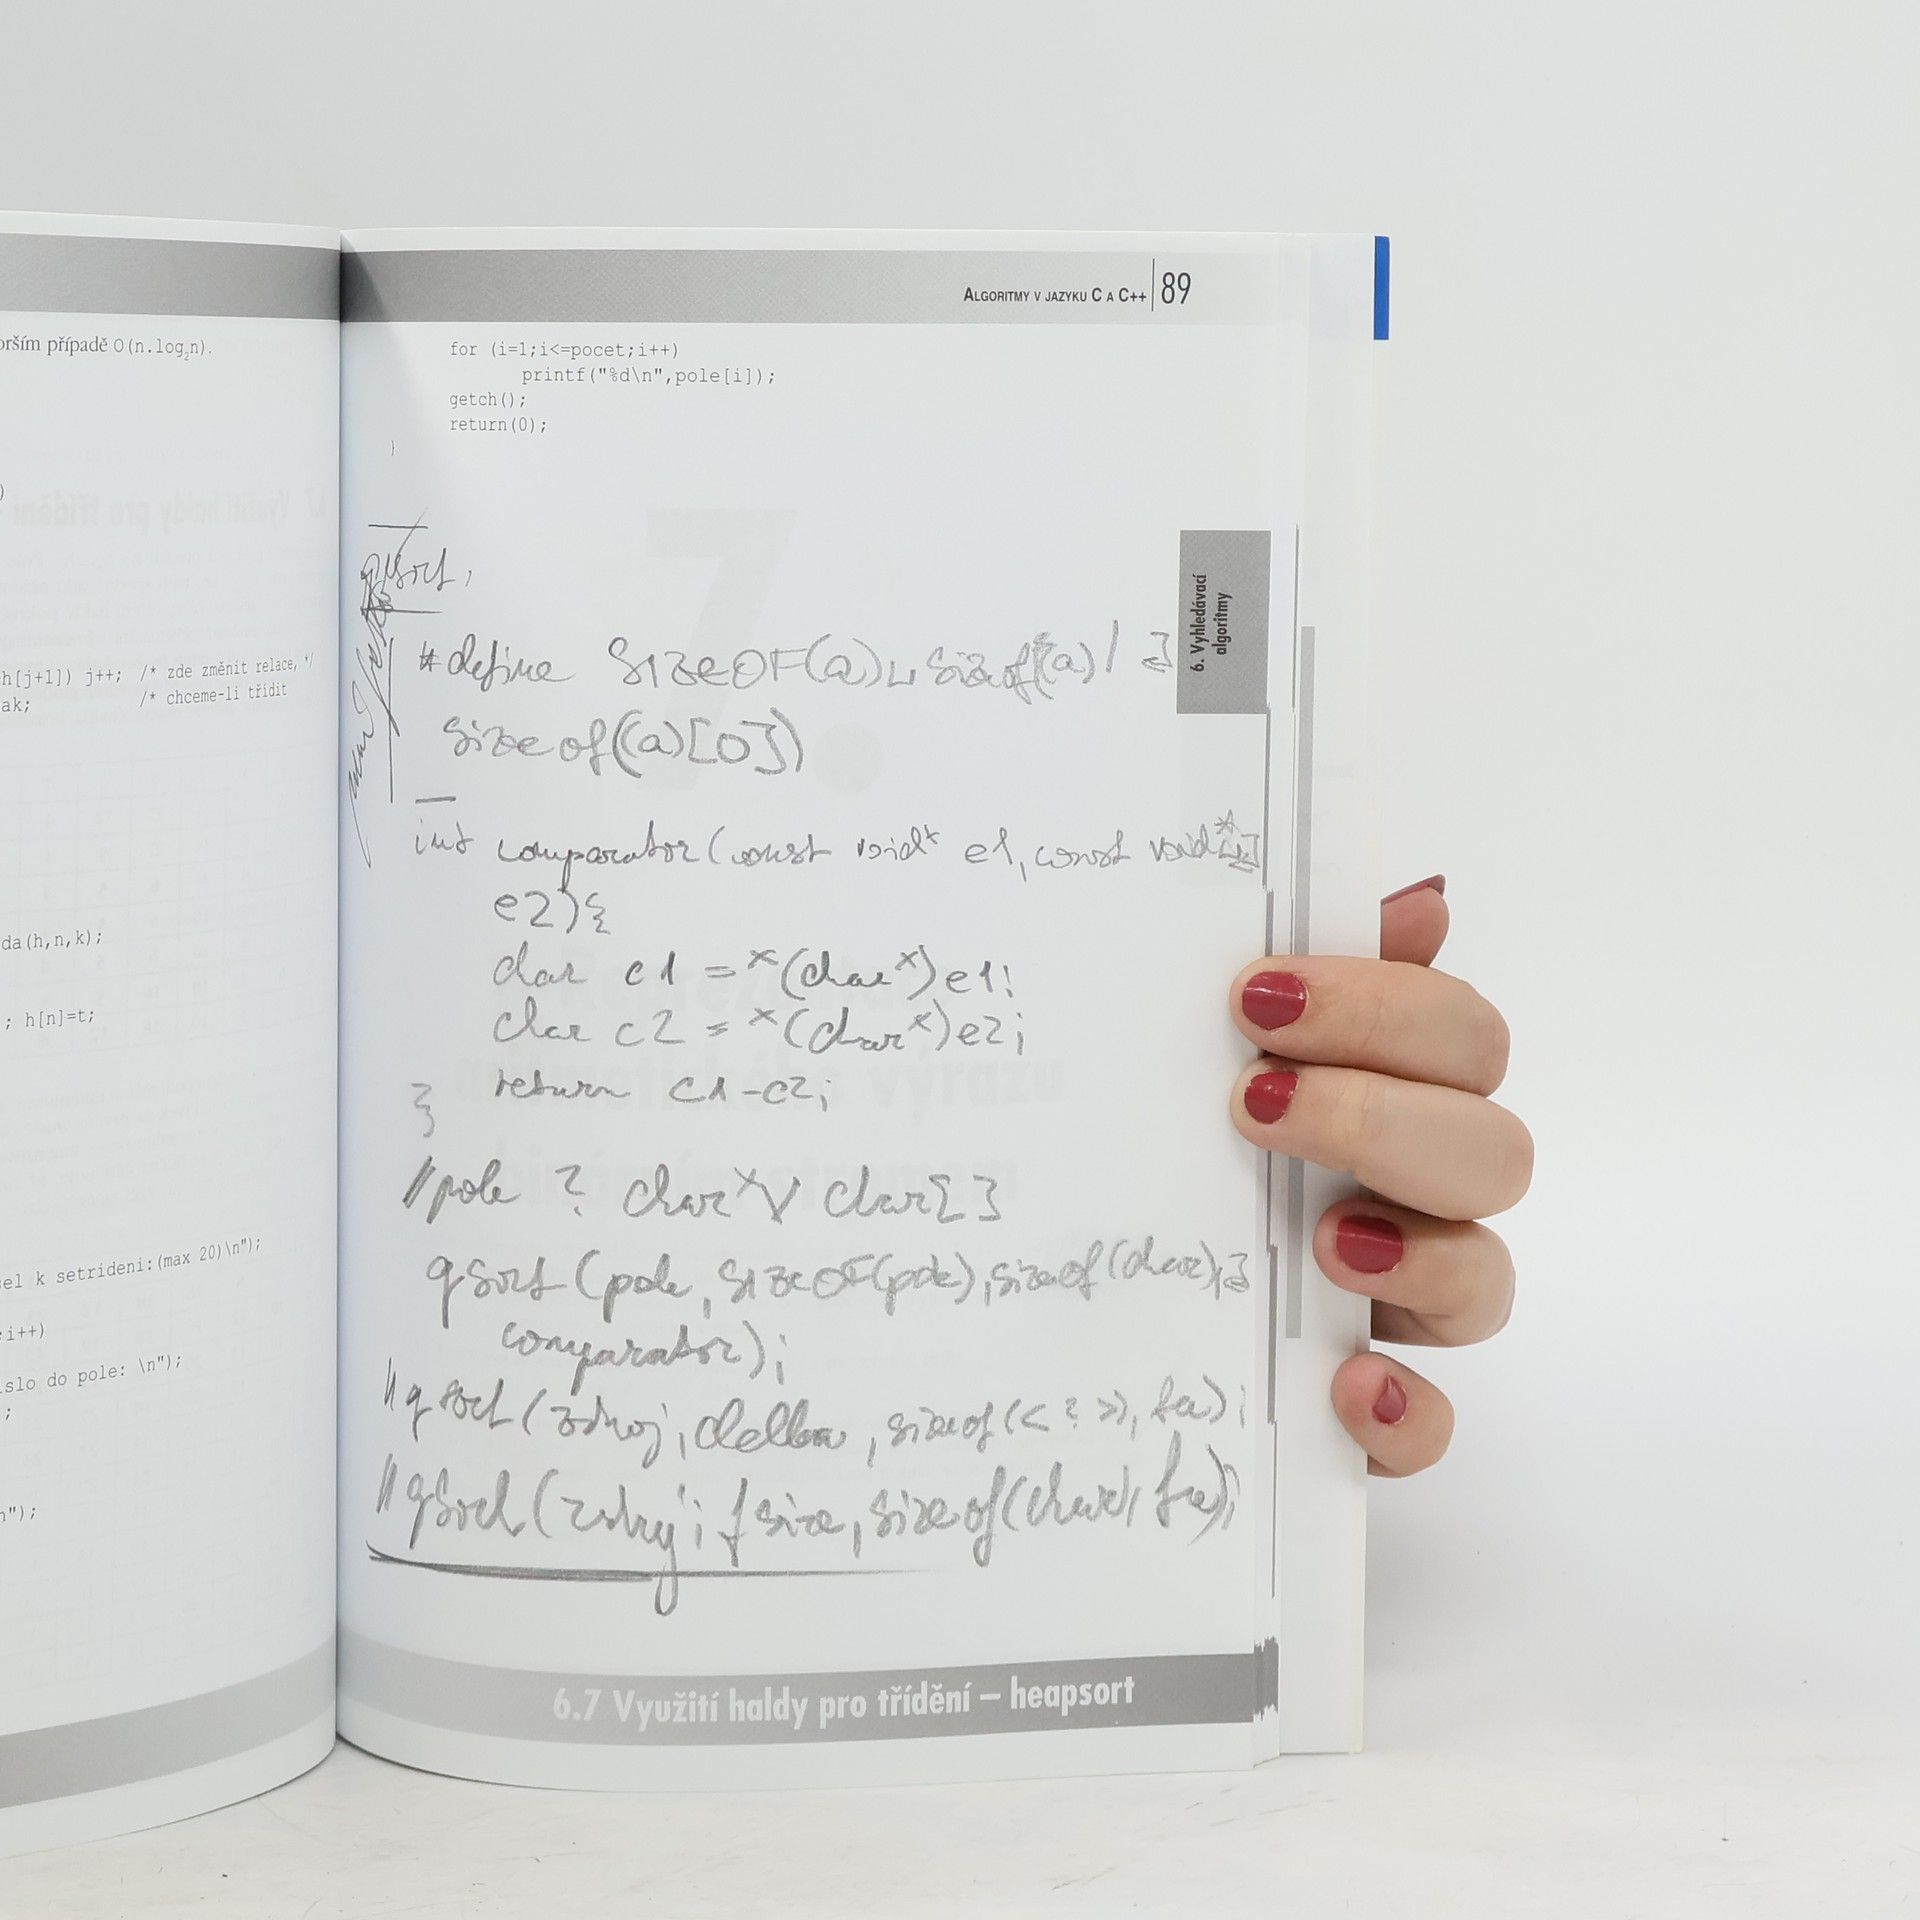 orším případě O(n.log₂n).
)
h[j+1]) j++; /* zde změnit relace, */
ak; /* chceme-li třídit
da(h,n,k);
; h[n]=t;
el k setrideni:(max 20)\n");
;i++)
slo do pole: \n");
;
n");
ALGORITMY V JAZYKU C A C++ 89
for (i=1;i<=pocet;i++)
printf("%d\n",pole[i]);
getch();
return(0);
}
6. Vyhledávací
algoritmy
#define SIZEOF(a) sizeof(a) /
sizeof((a)[0])
int comparator(const void* e1, const void*
e2){
char c1 = *(char*)e1;
char c2 = *(char*)e2;
return c1-c2;
}
//pole ? char* V char[]
qsort(pole, SIZEOF(pole), sizeof(char),
comparator);
//qsort(zdroj, delka, sizeof(<?>), fa);
//qsort(zdroj, fsize, sizeof(char), fa);
6.7 Využití haldy pro třídění – heapsort